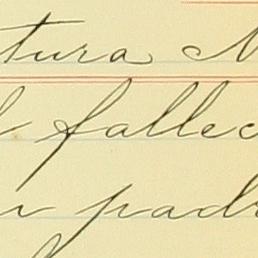 tura N
l fallec
u padr